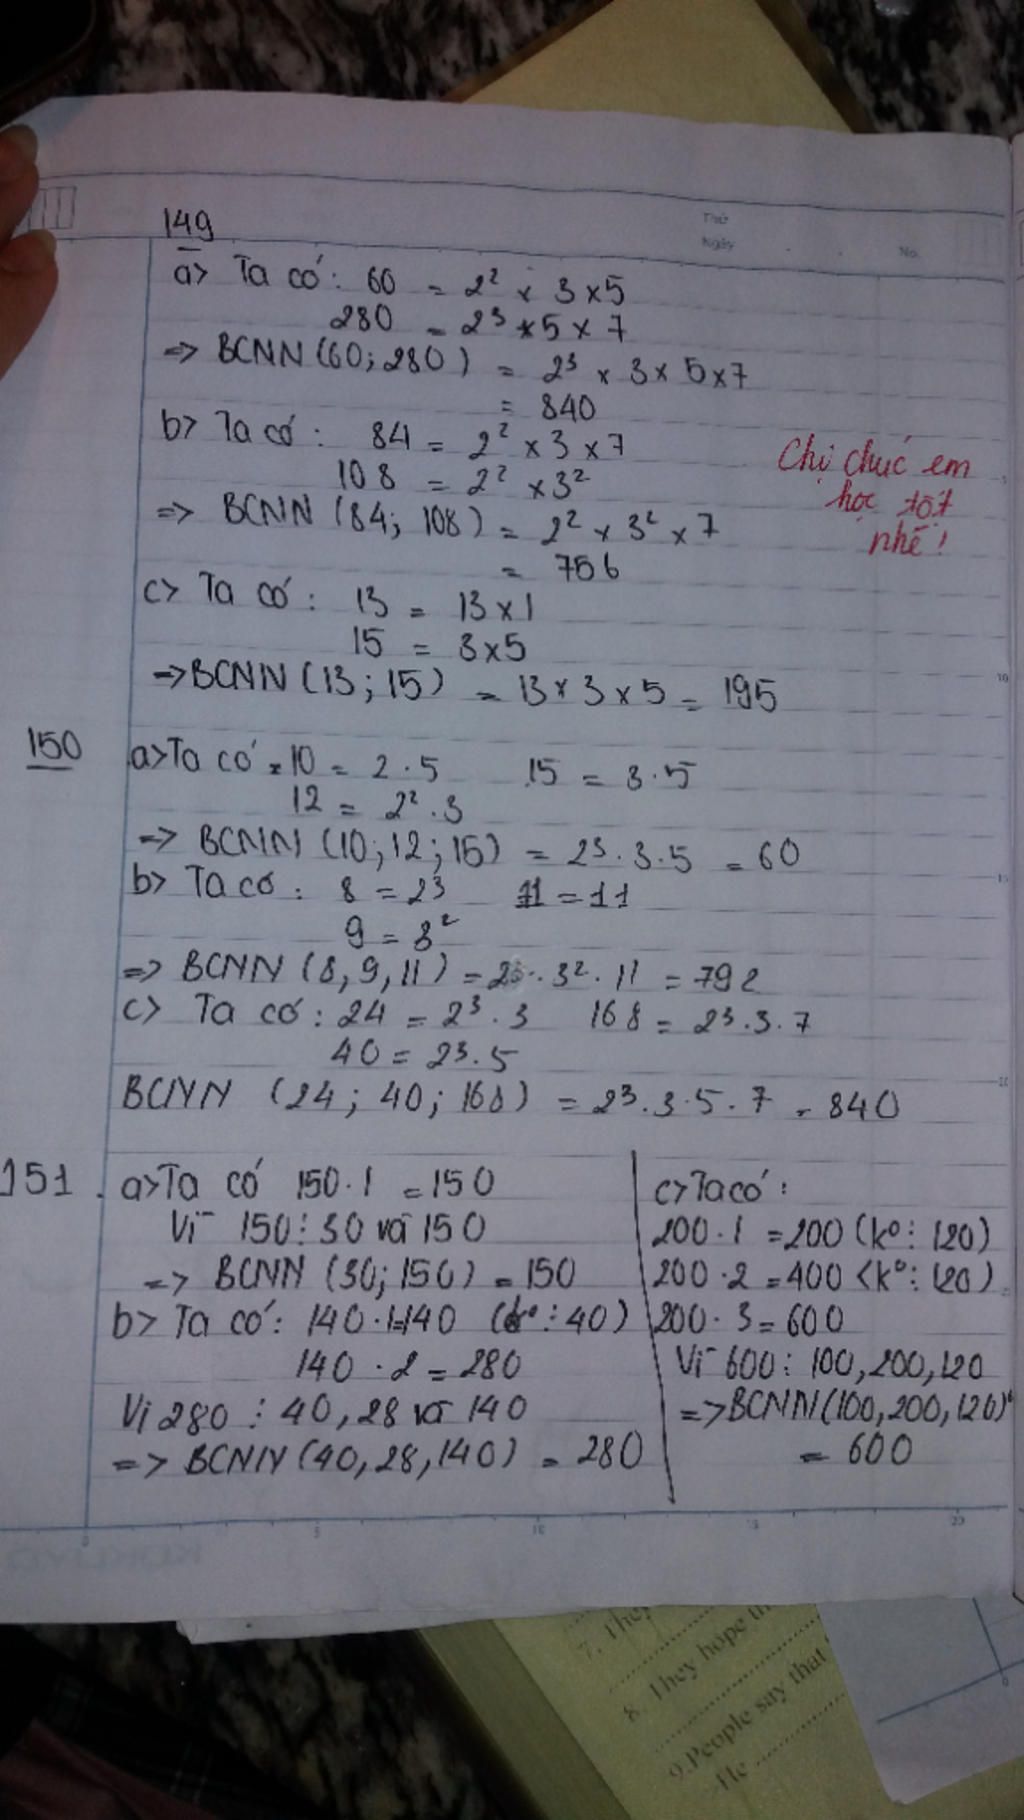 Thứ
Ngày
No.
149
a> Ta có: 60 = 2² x 3 x 5
280 = 2³ x 5 x 7
=> BCNN (60; 280) = 2³ x 3 x 5 x 7
= 840
b> Ta có: 84 = 2² x 3 x 7
108 = 2² x 3²
=> BCNN (84; 108) = 2² x 3² x 7
= 756
Chị chúc em
học tốt
nhé!
c> Ta có: 13 = 13 x 1
15 = 3 x 5
=> BCNN (13; 15) = 13 x 3 x 5 = 195
150 a> Ta có: 10 = 2 . 5 15 = 3 . 5
12 = 2² . 3
=> BCNN (10; 12; 15) = 2³ . 3 . 5 = 60
b> Ta có: 8 = 2³ 11 = 11
9 = 3²
=> BCNN (8, 9, 11) = 2³ . 3² . 11 = 792
c> Ta có: 24 = 2³ . 3 168 = 2³ . 3 . 7
40 = 2³ . 5
BCNN (24; 40; 168) = 2³ . 3 . 5 . 7 = 840
151. a> Ta có 150 . 1 = 150
Vì 150 ⋮ 30 và 150
=> BCNN (30; 150) = 150
b> Ta có: 140 . 1 = 140 (k° ⋮ 40)
140 . 2 = 280
Vì 280 ⋮ 40, 28 và 140
=> BCNN (40, 28, 140) = 280
c> Ta có:
200 . 1 = 200 (k° ⋮ 120)
200 . 2 = 400 (k° ⋮ 120)
200 . 3 = 600
Vì 600 ⋮ 100, 200, 120
=> BCNN (100, 200, 120)
= 600
5
10
15
20
0
5
10
15
20
7. They
8. They hope
9. People say that
He